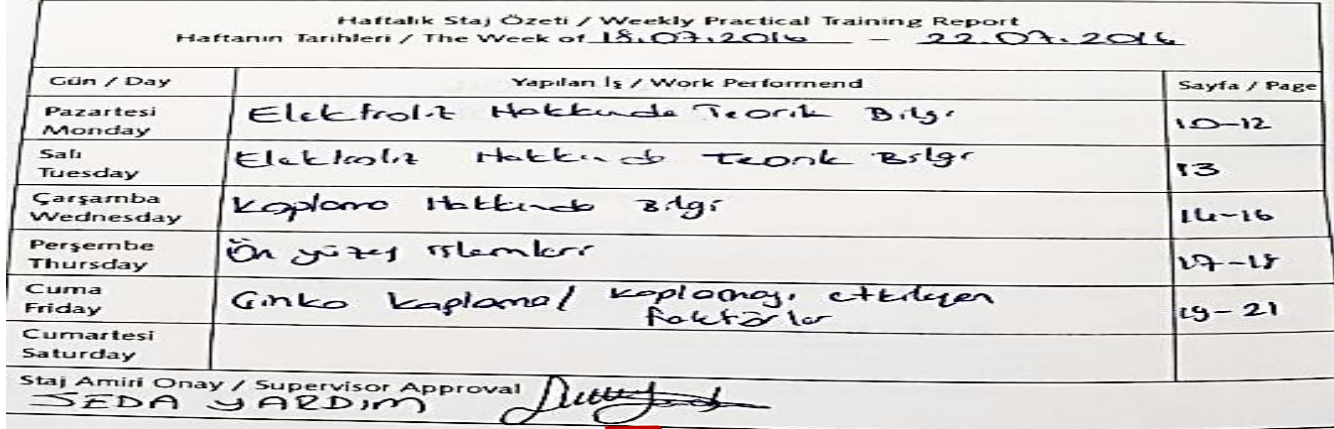 Haftalık Staj Özeti / Weekly Practical Training Report
Haftanın Tarihleri / The Week of 18.07.2016 - 22.07.2016
Gün / Day Yapılan İş / Work Performend Sayfa / Page
Pazartesi
Monday
Elektroliz Hakkında Teorik Bilgi 10-12
Salı
Tuesday
Elektroliz Hakkında Teorik Bilgi 13
Çarşamba
Wednesday
Kaplama Hakkında Bilgi 14-16
Perşembe
Thursday
Ön yüzey işlemleri 17-18
Cuma
Friday
Çinko Kaplama / Kaplamayı etkileyen
faktörler
19-21
Cumartesi
Saturday
Staj Amiri Onay / Supervisor Approval
SEDA YARDIM